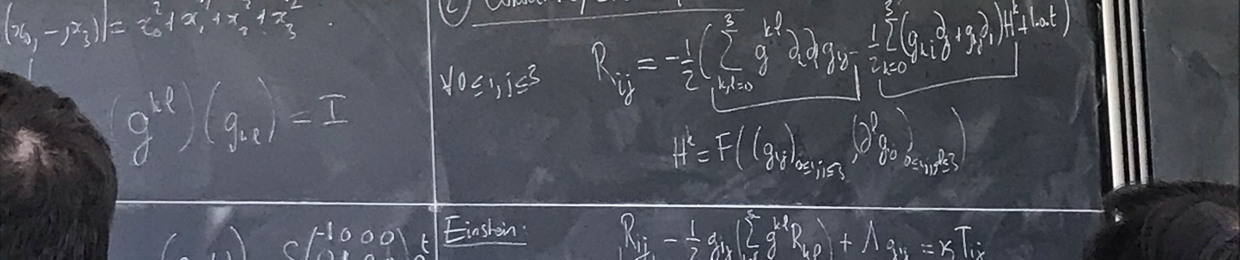 |(x₀,-,x₃)| = x₀²+x₁²+x₂²+x₃².
(g^{kl})(g_{kl}) = I
∀0≤i,j≤3
R_{ij} = -1/2 (∑_{k,l=0}^{3} g^{kl} ∂_k∂_l g_{ij} - 1/2 ∑_{k=0}^{3} (g_{ki}∂_j + g_{kj}∂_i) H^k + l.o.t)
H^k = F((g_{ij})_{0≤i,j≤3},
(-1 0 0 0)
Einstein:
R_{ij} - 1/2 g_{ij} (∑ g^{kl} R_{kl}) + Λ g_{ij} = κ T_{ij}